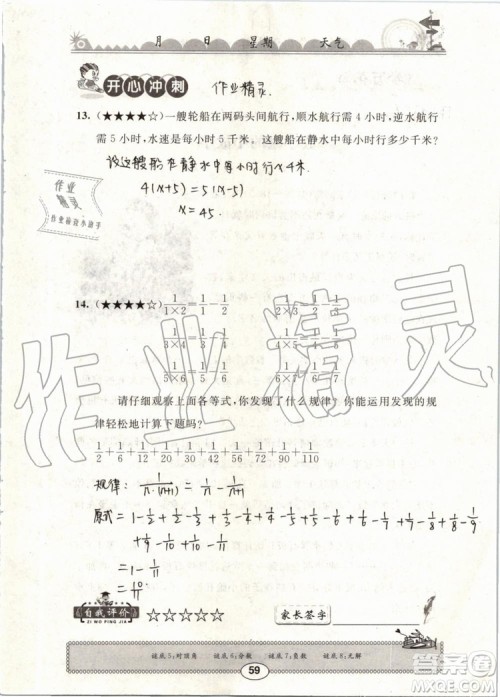 月 日 星期 天气
开心冲刺 作业精灵.
13.(★★★★☆)一艘轮船在两码头间航行,顺水航行需 4 小时,逆水航行
需 5 小时,水速是每小时 5 千米,这艘船在静水中每小时行多少千米?
设这艘船在静水中每小时行x千米.
4(x+5)=5(x-5)
x=45.
作业
精灵
作业检查小助手
14.(★★★★☆) 1/(1×2)=1/1-1/2 1/(2×3)=1/2-1/3
1/(3×4)=1/3-1/4 1/(4×5)=1/4-1/5
1/(5×6)=1/5-1/6 1/(6×7)=1/6-1/7
请仔细观察上面各等式,你发现了什么规律?你能运用发现的规
律轻松地计算下题吗?
1/2+1/6+1/12+1/20+1/30+1/42+1/56+1/72+1/90+1/110
规律: 1/(n·(n+1))=1/n-1/(n+1)
原式=1-1/2+1/2-1/3+1/3-1/4+1/4-1/5+1/5-1/6+1/6-1/7+1/7-1/8+1/8-1/9
+1/9-1/10+1/10-1/11
=1-1/11
=10/11.
自我评价 ☆☆☆☆☆ 家长签字
ZI WO PING JIA
谜底 5:对顶角 谜底 6:分数 谜底 7:负数 谜底 8:无解
59
作业精灵
答案圈
MXQE.COM